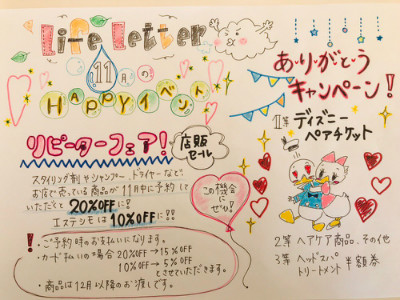 Life Letter
11月の
HAPPYイベント
リピーターフェア!
店販
セール
スタイリング剤やシャンプー、ドライヤーなど
お店で売っている商品が11月中に予約して
いただくと20%OFFに!!
エステシモは10%OFFに!!
・ご予約時のお支払いになります。
・カード払いの場合 20%OFF→15%OFF
10%OFF→5%OFF
とさせていただきます。
・商品は12月以降のお渡しです。
この機会に
ぜひ!
ありがとう
キャンペーン!
1等 ディズニー
ペアチケット
2等 ヘアケア商品、その他
3等 ヘッドスパ
トリートメント 半額券